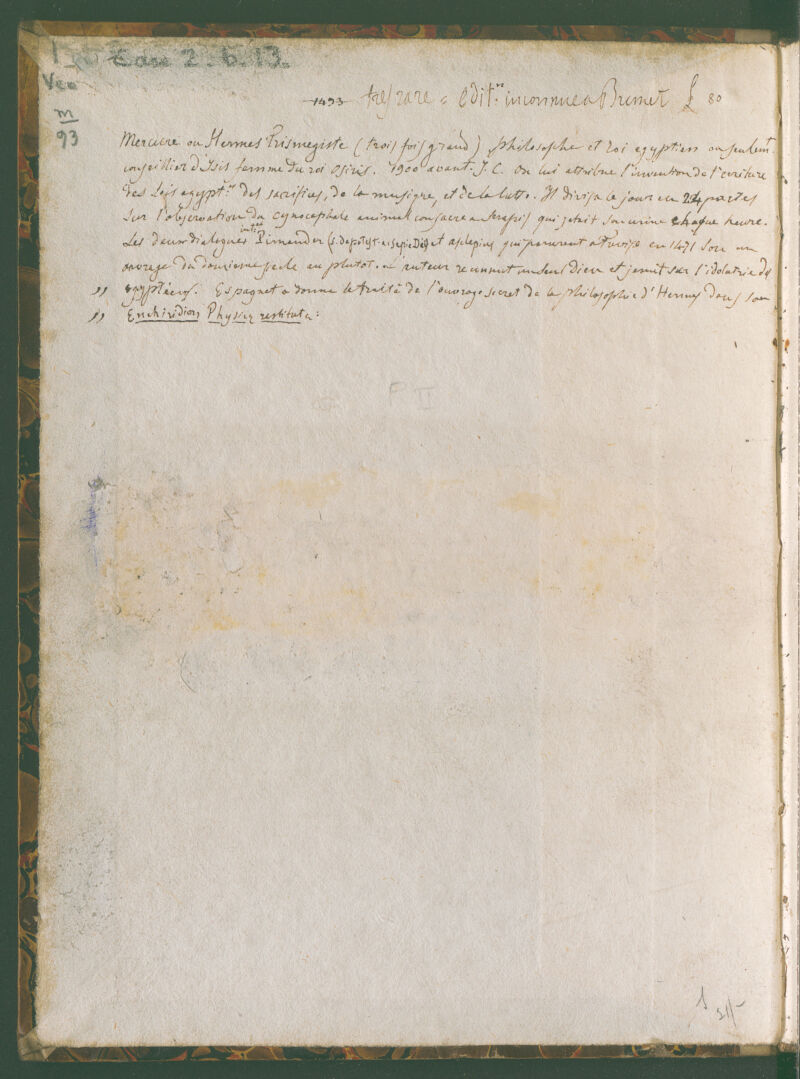 Case 2. 6. 13.
Ven
m
93
1493 très rare & Editon inconnue a Brunet £ 80
Mercure ou Hermes Trismegiste (trois fois grand), philosophe et roi egyptien ou seulemt
conseiller d'Isis femme du roi Osiris. 1900 avant. J. C. On lui attribue l'invention de l'ecriture
des Lois egyptnes des sacrifices, de la musique, et de la lutte. Il divisa le jour en 24 parties
sur l'observation du cynocephale animal consacre a Serapis qui jetait son urine chaque heure.
Les deux dialogues Pimander (s. de pot. et sapia Dei) et asclepius qui parurent a Trevise en 1471 sou un
ouvrage du douxieme siecle au plutot. L'auteur reconnut un seul Dieu et jemit sur l'idolatrie des
,, egyptiens. Espagnet a donné le traité de l'ouvrage secret de la philosophie d'Hermes dans son
,, Enchiridion Physicæ restitutæ:
F II